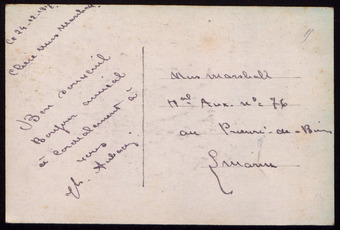 Ce 24-12-
Chère Miss Marshall
Bon souvenir
Bonjour amical
et cordialement à
vous
Miss Marshall
Hal Aux. N° 76
au Prieuré-de-Binson